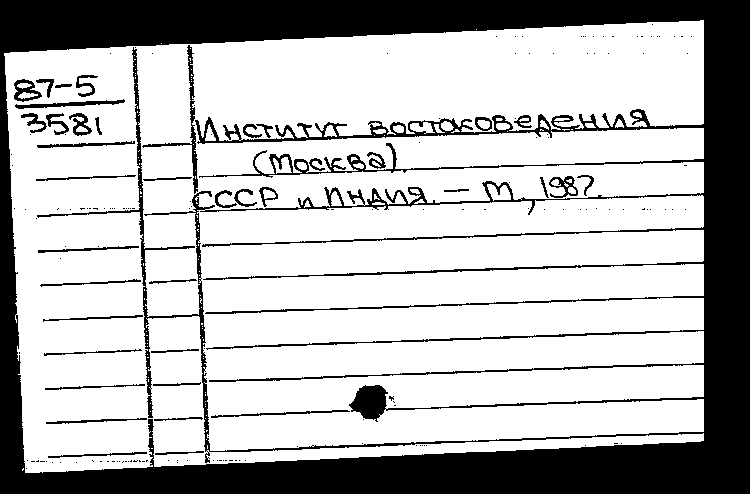 87-5
3581
Институт востоковедения
(Москва).
СССР и Индия. — М., 1987.